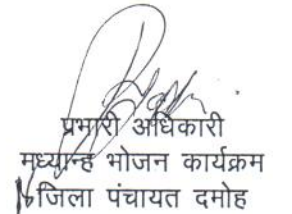 प्रभारी अधिकारी
मध्यान्ह भोजन कार्यक्रम
जिला पंचायत दमोह